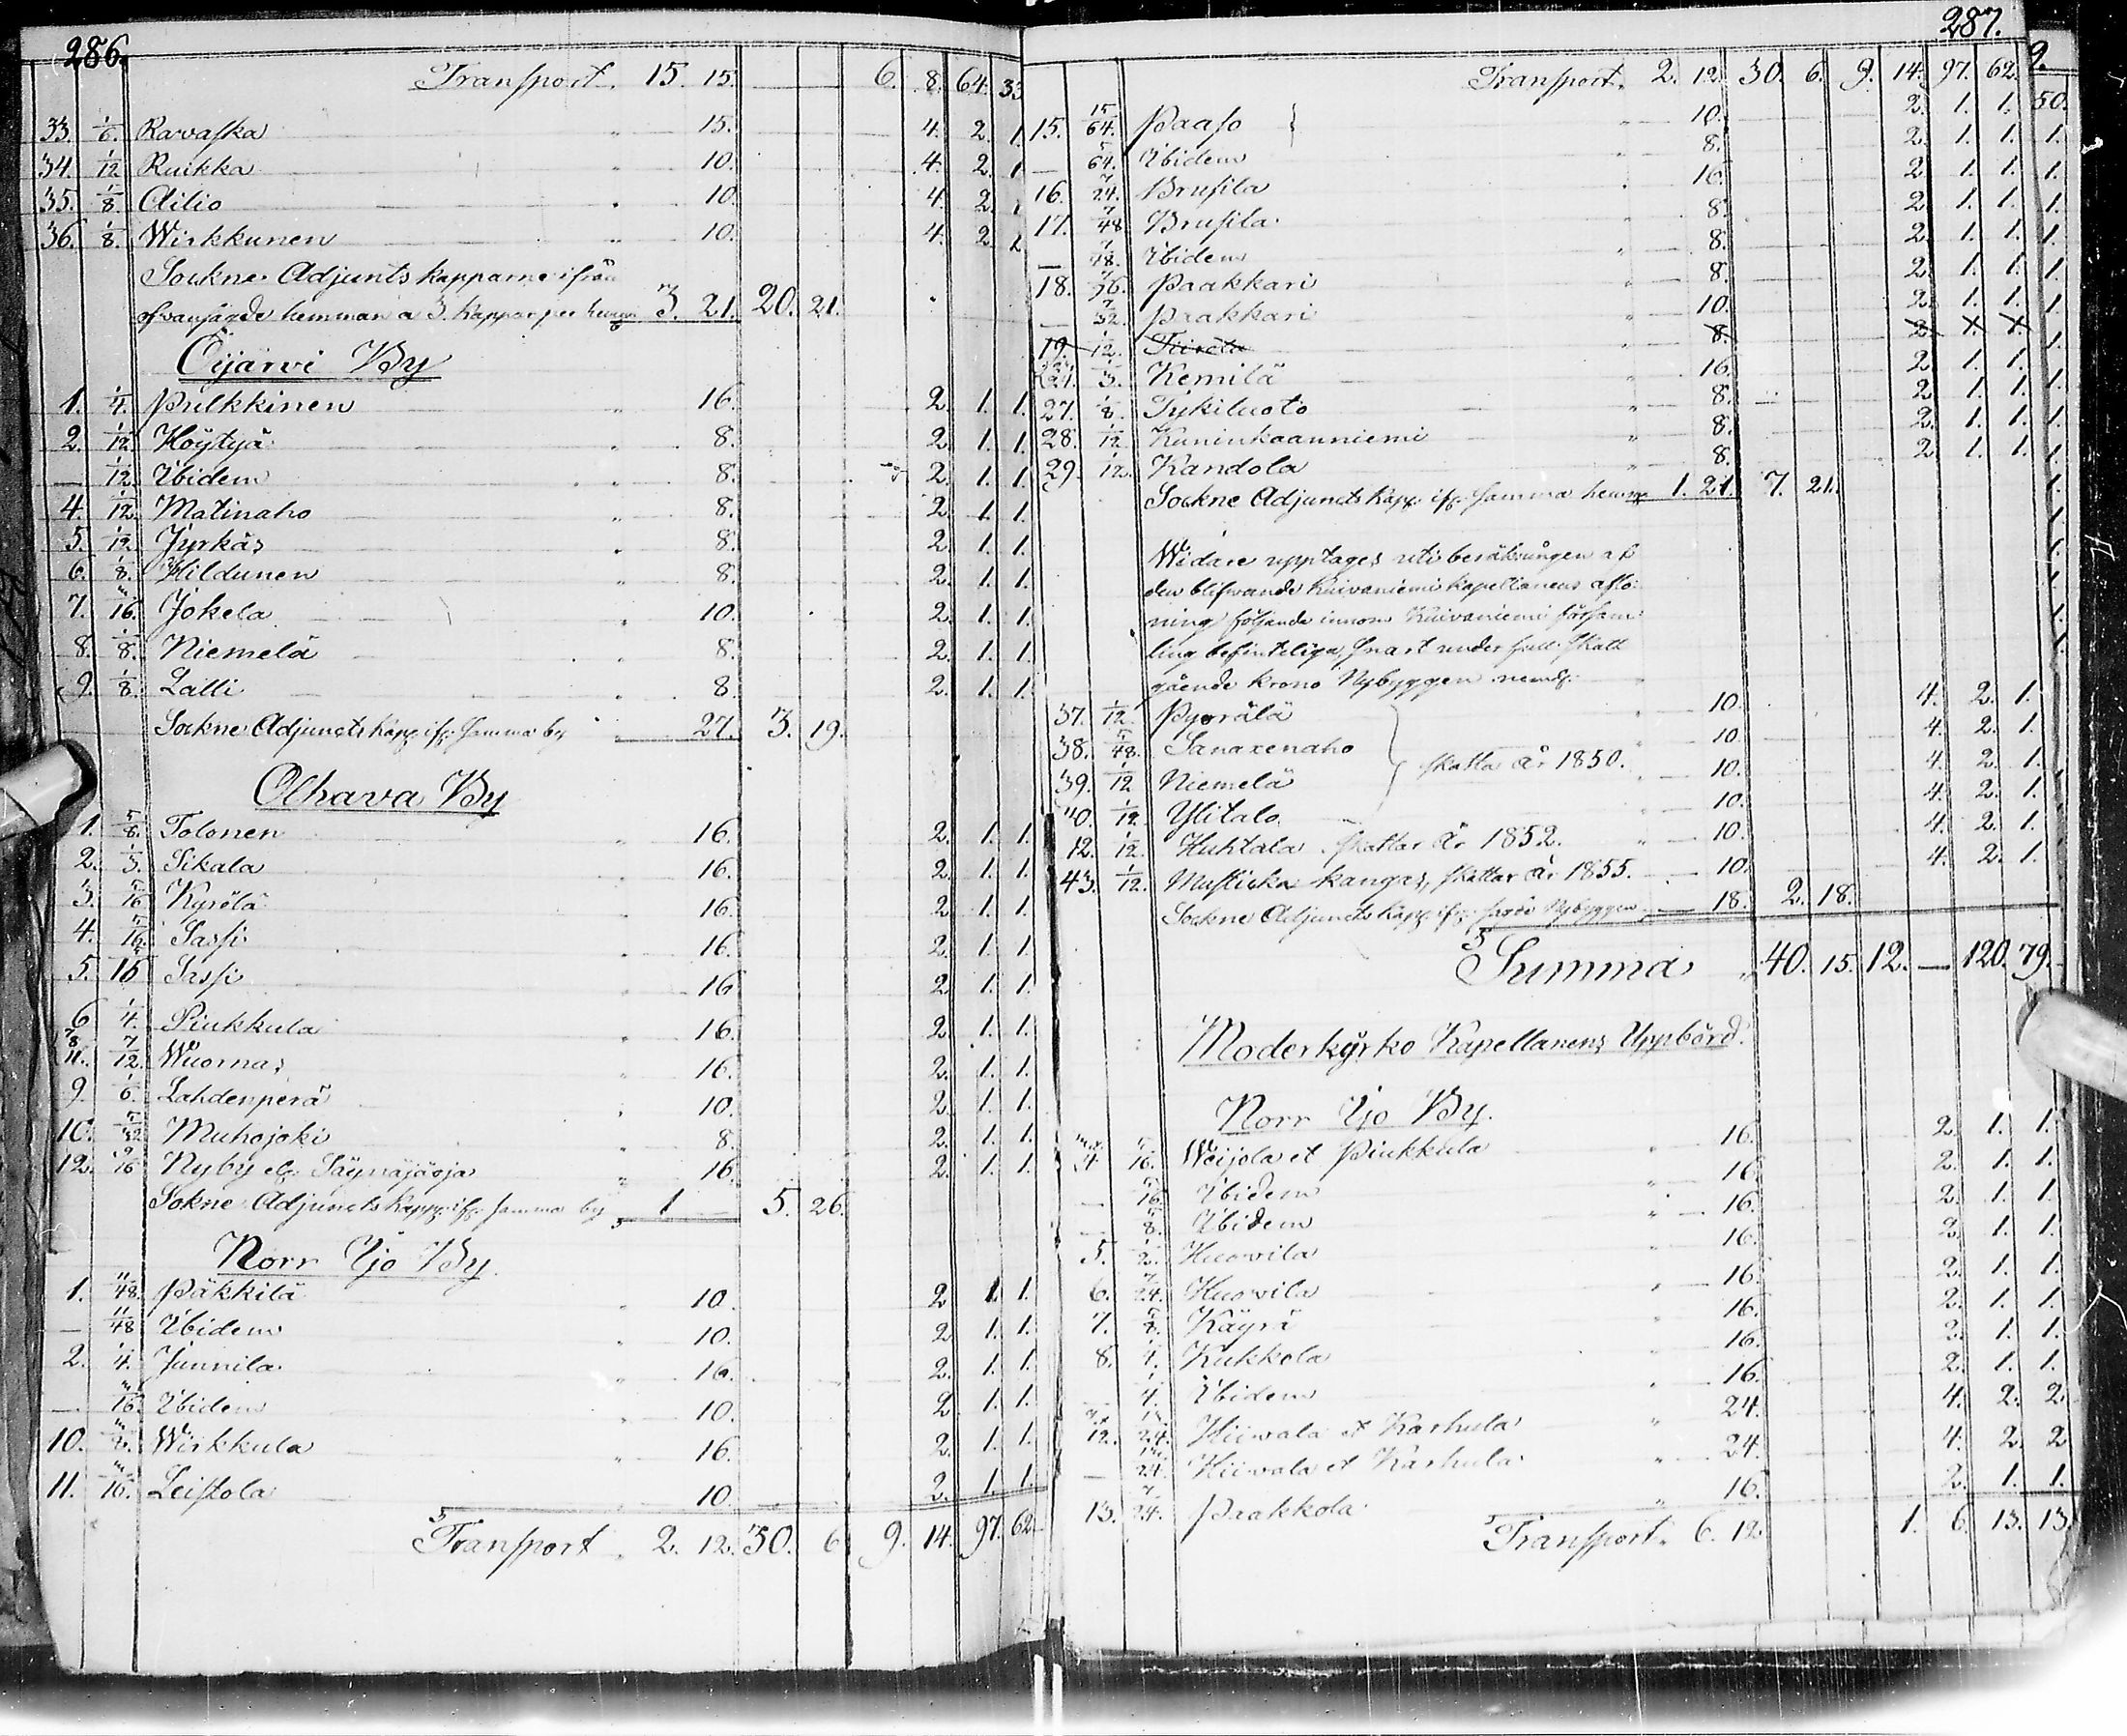 286.
Transport. 15. 15. 6. 8. 64. 33
33. 1/6. Ravaska " 15. 4. 2. 1
34. 1/12 Ruikka " 10. 4. 2. 1
35. 1/8. Ailio " 10. 4. 2. 1
36. 1/8. Wirkkunen " 10. 4. 2. 1
Sockne Adjunts kapparne ifrån
ofvanförde hemman a 3. kappar per hemn 3. 21. 20. 21.
Oijärvi By
1. 1/4. Pulkkinen " 16. 2. 1. 1.
2. 1/12. Höytyä " 8. 2. 1. 1.
— 1/12. Ibidem " 8. 2. 1. 1.
4. 1/12. Matinaho " 8. 2. 1. 1.
5. 1/12. Jyrkäs " 8. 2. 1. 1.
6. 1/8. Hildunen " 8. 2. 1. 1.
7. 3/16. Jokela " 10. 2. 1. 1.
8. 1/8. Niemelä " 8. 2. 1. 1.
9. 1/8. Lalli " 8. 2. 1. 1.
Sockne Adjuncts kapp. ifr. samma by " 27. 3. 19.
Olhava By
1. 5/8. Tolonen " 16. 2. 1. 1.
2. 1/3. Sikala " 16. 2. 1. 1.
3. 5/16 Kyrölä " 16. 2. 1. 1.
4. 5/16. Sassi " 16. 2. 1. 1.
5. 5/16 Sassi " 16 2. 1. 1.
6 1/4. Piukkula " 16. 2. 1. 1.
7. 8. 11. 7/12. Wuornas " 16. 2. 1. 1.
9. 1/6. Lahdenperä " 10. 2. 1. 1.
10. 5/32 Muhojoki " 8. 2. 1. 1.
12. 9/16 Nyby el. Säynäjäoja " 16. 2. 1. 1.
Sokne Adjuncts kapp. ifr. samma by 1 — 5. 26.
Norr Ijo By.
1. 11/48. Päkkilä " 10. 2 1. 1.
— 11/48 Ibidem " 10. 2 1. 1.
2. 1/4. Junnila " 16. 2. 1. 1.
— 3/16. Ibidem " 10. 2 1. 1.
10. 3/8. Wirkkula " 16. 2. 1. 1.
11. 3/16. Leistola " 10. 2. 1. 1.
Transport " 2. 12. 30. 6. 9. 14. 97. 62
287.
Transport. 2. 12. 30. 6. 9. 14. 97. 62.
15. 15/64. Paaso " 10. 2. 1. 1.
— 5/64. Ibidem " 8. 2. 1. 1.
16. 7/24. Brusila " 16. 2 1. 1.
17. 7/48 Brusila " 8. 2. 1. 1.
— 7/48. Ibidem " 8. 2. 1. 1.
18. 7/36. Paakkari " 8. 2. 1. 1.
— 7/32. Paakkari " 10. 2. 1. 1.
19. 1/12. Tiirola " 8. 2 1. 1.
24. 1/3. Kemilä " 16. 2. 1. 1.
27. 1/8. Tykiluoto " 8. 2. 1. 1.
28. 1/12. Kuninkaanniemi " 8. 2. 1. 1.
29. 1/12. Kandola " 8. 2. 1. 1.
Sockne Adjuncts kapp. ifr. samma hemn 1. 21. 7. 21.
Widare upptages uti beräkningen af
den blifwande Kuivaniemi kapellanens aflö-
ning följande innom Kuivaniemi försam-
ling befinteliga, snart under full Skatt
gående krono Nybyggen nemf.
37. 1/12. Pyörälä " 10. 4. 2. 1.
38. 5/48. Sanaxenaho " 10. 4. 2. 1.
skatta år 1850.
39. 1/12 Niemelä " 10. 4. 2. 1.
40. 1/12. Ylitalo " 10. 4. 2. 1.
42. 1/12. Huhtala. skattar år 1852. " 10. 4. 2. 1.
43. 1/12. Mustickakangas, skattar år 1855. " 10. 4. 2. 1.
Sockne Adjuncts kapp. ifr. förde Nybyggen 18. 2. 18.
Summa " 40. 15. 12. — 120. 79.
Moderkyrko Kapellanens Uppbörd.
Norr Ijo By.
4 5/16. Weijola et Piukkula " 16. 2. 1. 1.
— 5/16 Ibidem " 16. 2. 1. 1.
— 5/8. Ibidem " 16. 2. 1. 1.
5. 1/2. Huovila " 16. 2. 1. 1.
6. 7/24. Huovila " 16. 2. 1. 1.
7. 5/8. Käyrä " 16. 2. 1. 1.
8. 1/4. Kukkola " 16. 2. 1. 1.
— 1/4. Ibidem " 16. 2. 1. 1.
12. Hiivala et Karhula " 24. 4. 2. 2
— Hiivala et Karhula " 24. 4. 2. 2
13. 7/24. Paakkola " 16. 2. 1. 1.
Transport " 6. 12. 1. 6. 13. 13.